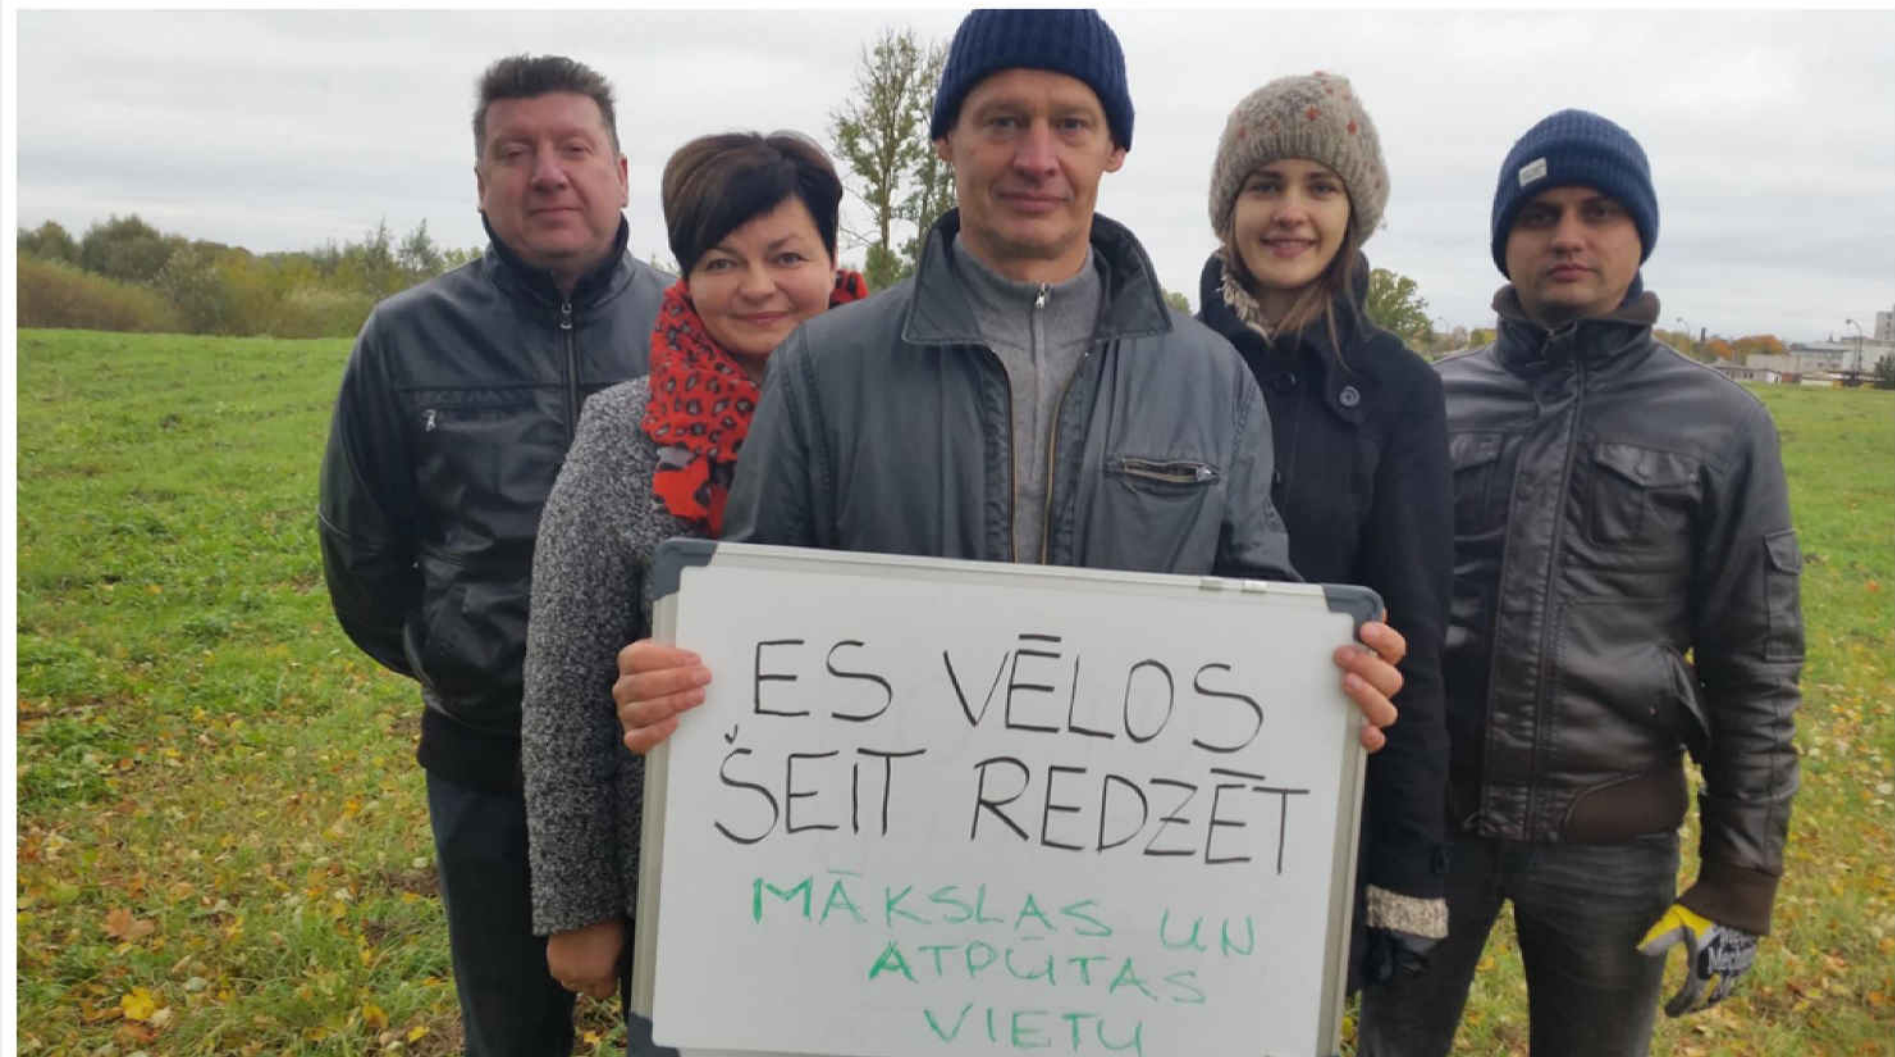 ES VĒLOS
ŠEIT REDZĒT
MĀKSLAS UN
ATPŪTAS
VIETU